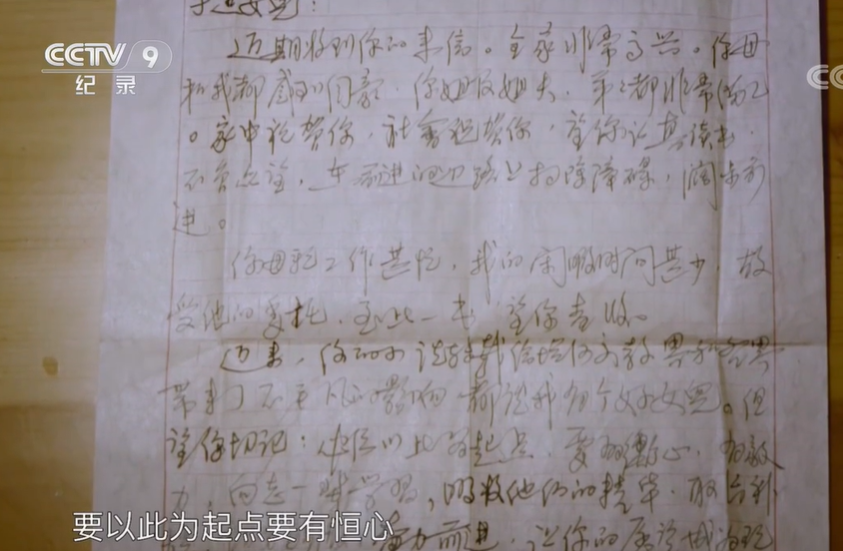 女儿：
CCTV 9
纪录
近期收到你的来信。全家非常高兴。你母
和我都感到自豪，你姐及姐夫，弟弟都非常
。家中祝贺你，社会祝贺你，望你认真读书，
不负众望，在前进的道路上扫除障碍，阔步前
进。
你母亲工作甚忙，我的闲暇时间甚少，故
受他的委托，至此一书，望你查收。
近来，你的小说
带来了不平凡的影响，都说我有个好女儿。但
望你切记：以此为起点，要有恒心，有毅
力，吸收他们的精华，取
要以此为起点要有恒心
而进，让你的